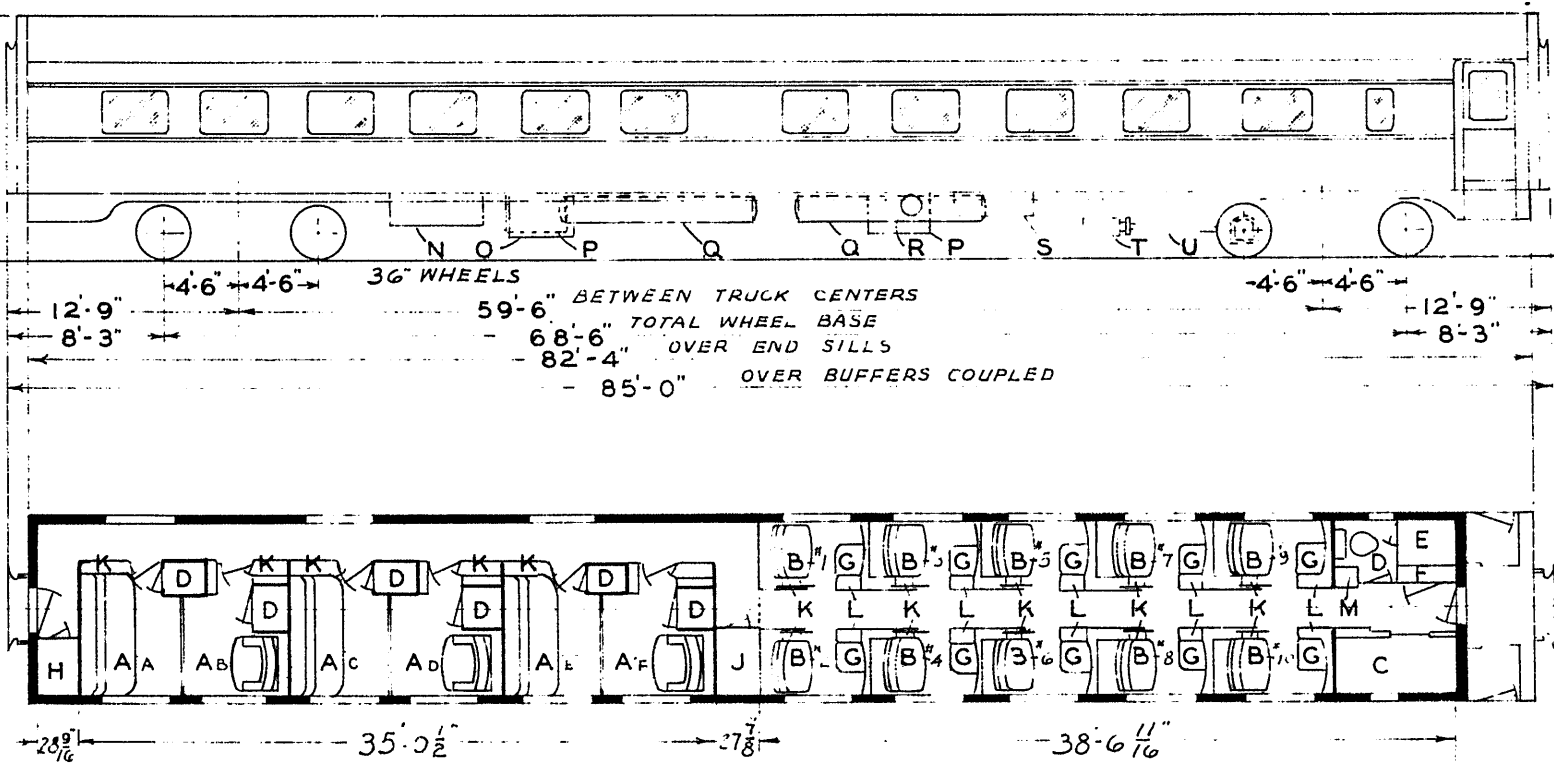 N O P Q Q R P S T U
4'-6" 4'-6" 36" WHEELS 4'-6" 4'-6"
12'-9" 59'-6" BETWEEN TRUCK CENTERS 12'-9"
8'-3" 68'-6" TOTAL WHEEL BASE 8'-3"
82'-4" OVER END SILLS
85'-0" OVER BUFFERS COUPLED
B #1 G B G B #5 G B #7 G B 9 G D E
K D K K D K K D F
D D D K L K L K L K L K L M
H A A A B A C A D A E A F J B G B #4 G B 6 G B 8 G B 10 G C
28 9/16" 35'-0 1/2" 27 7/8 38'-6 11/16"